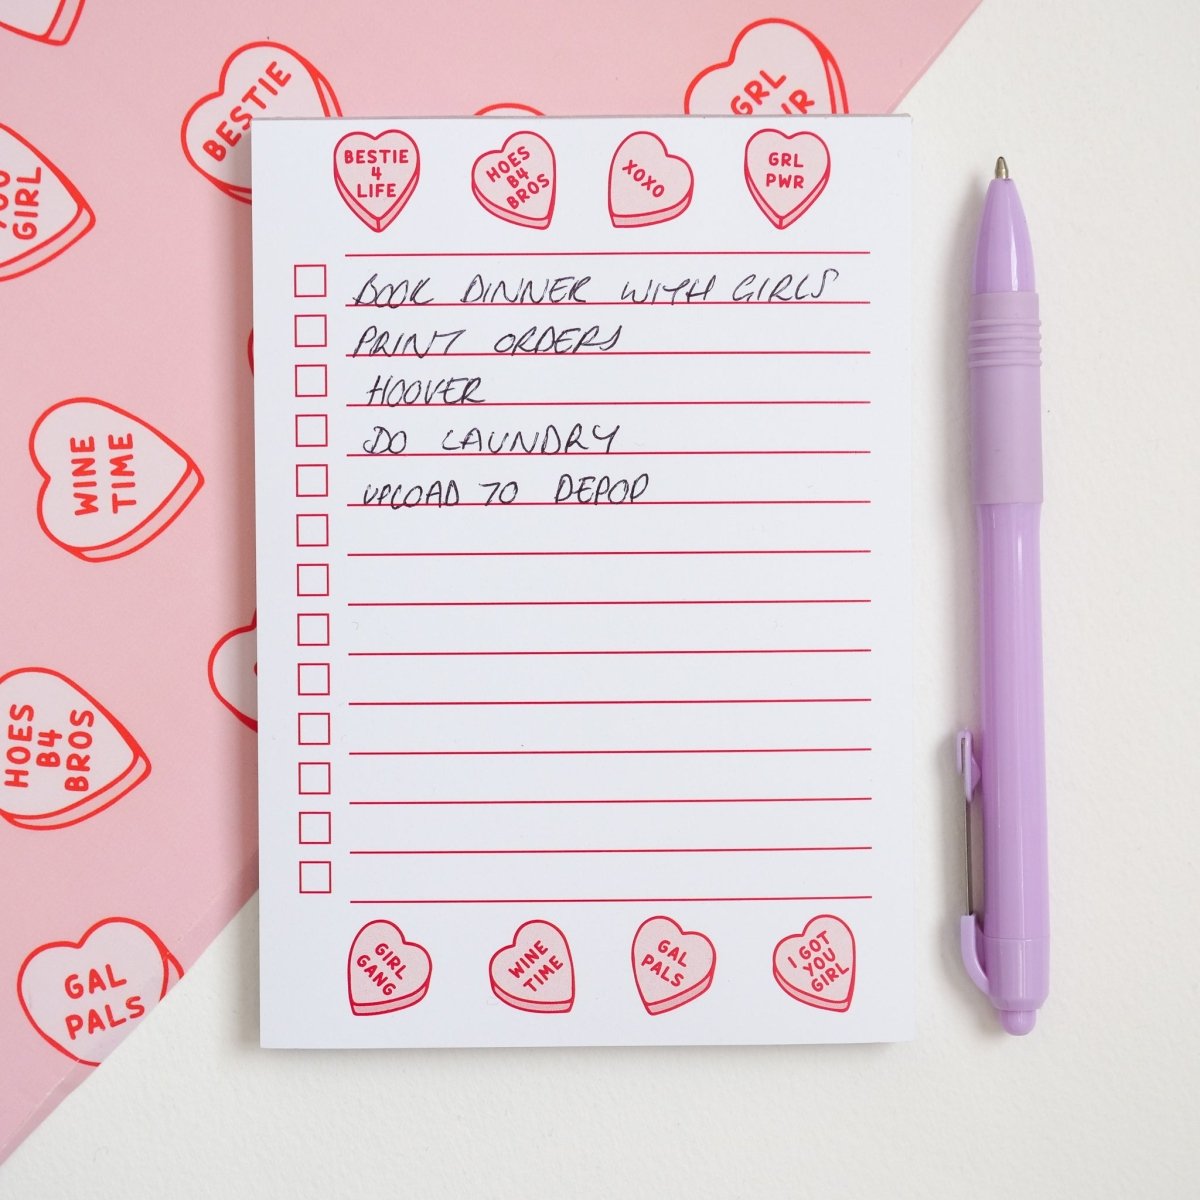 BESTIE
GRL
PWR
YOU
GIRL
BESTIE
4
LIFE
HOES
B4
BROS
XOXO
GRL
PWR
BOOK DINNER WITH GIRLS
PRINT ORDERS
HOOVER
DO LAUNDRY
UPLOAD TO DEPOP
WINE
TIME
HOES
B4
BROS
GAL
PALS
GIRL
GANG
WINE
TIME
GAL
PALS
I GOT
YOU
GIRL